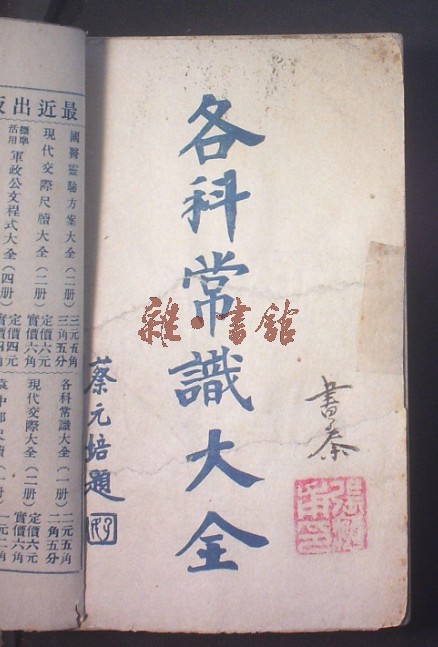 各科常識大全
蔡元培題
雜·書館
書泰
最近出版
國醫靈驗方案大全（二册）
三元五角
三角五分
現代交際尺牘大全（二册）
定價六元
實價六角
標準活用軍政公文程式大全（四册）
定價四元
實價四角
各科常識大全（一册）
二元五角
二角五分
現代交際大全（二册）
定價六元
實價六角